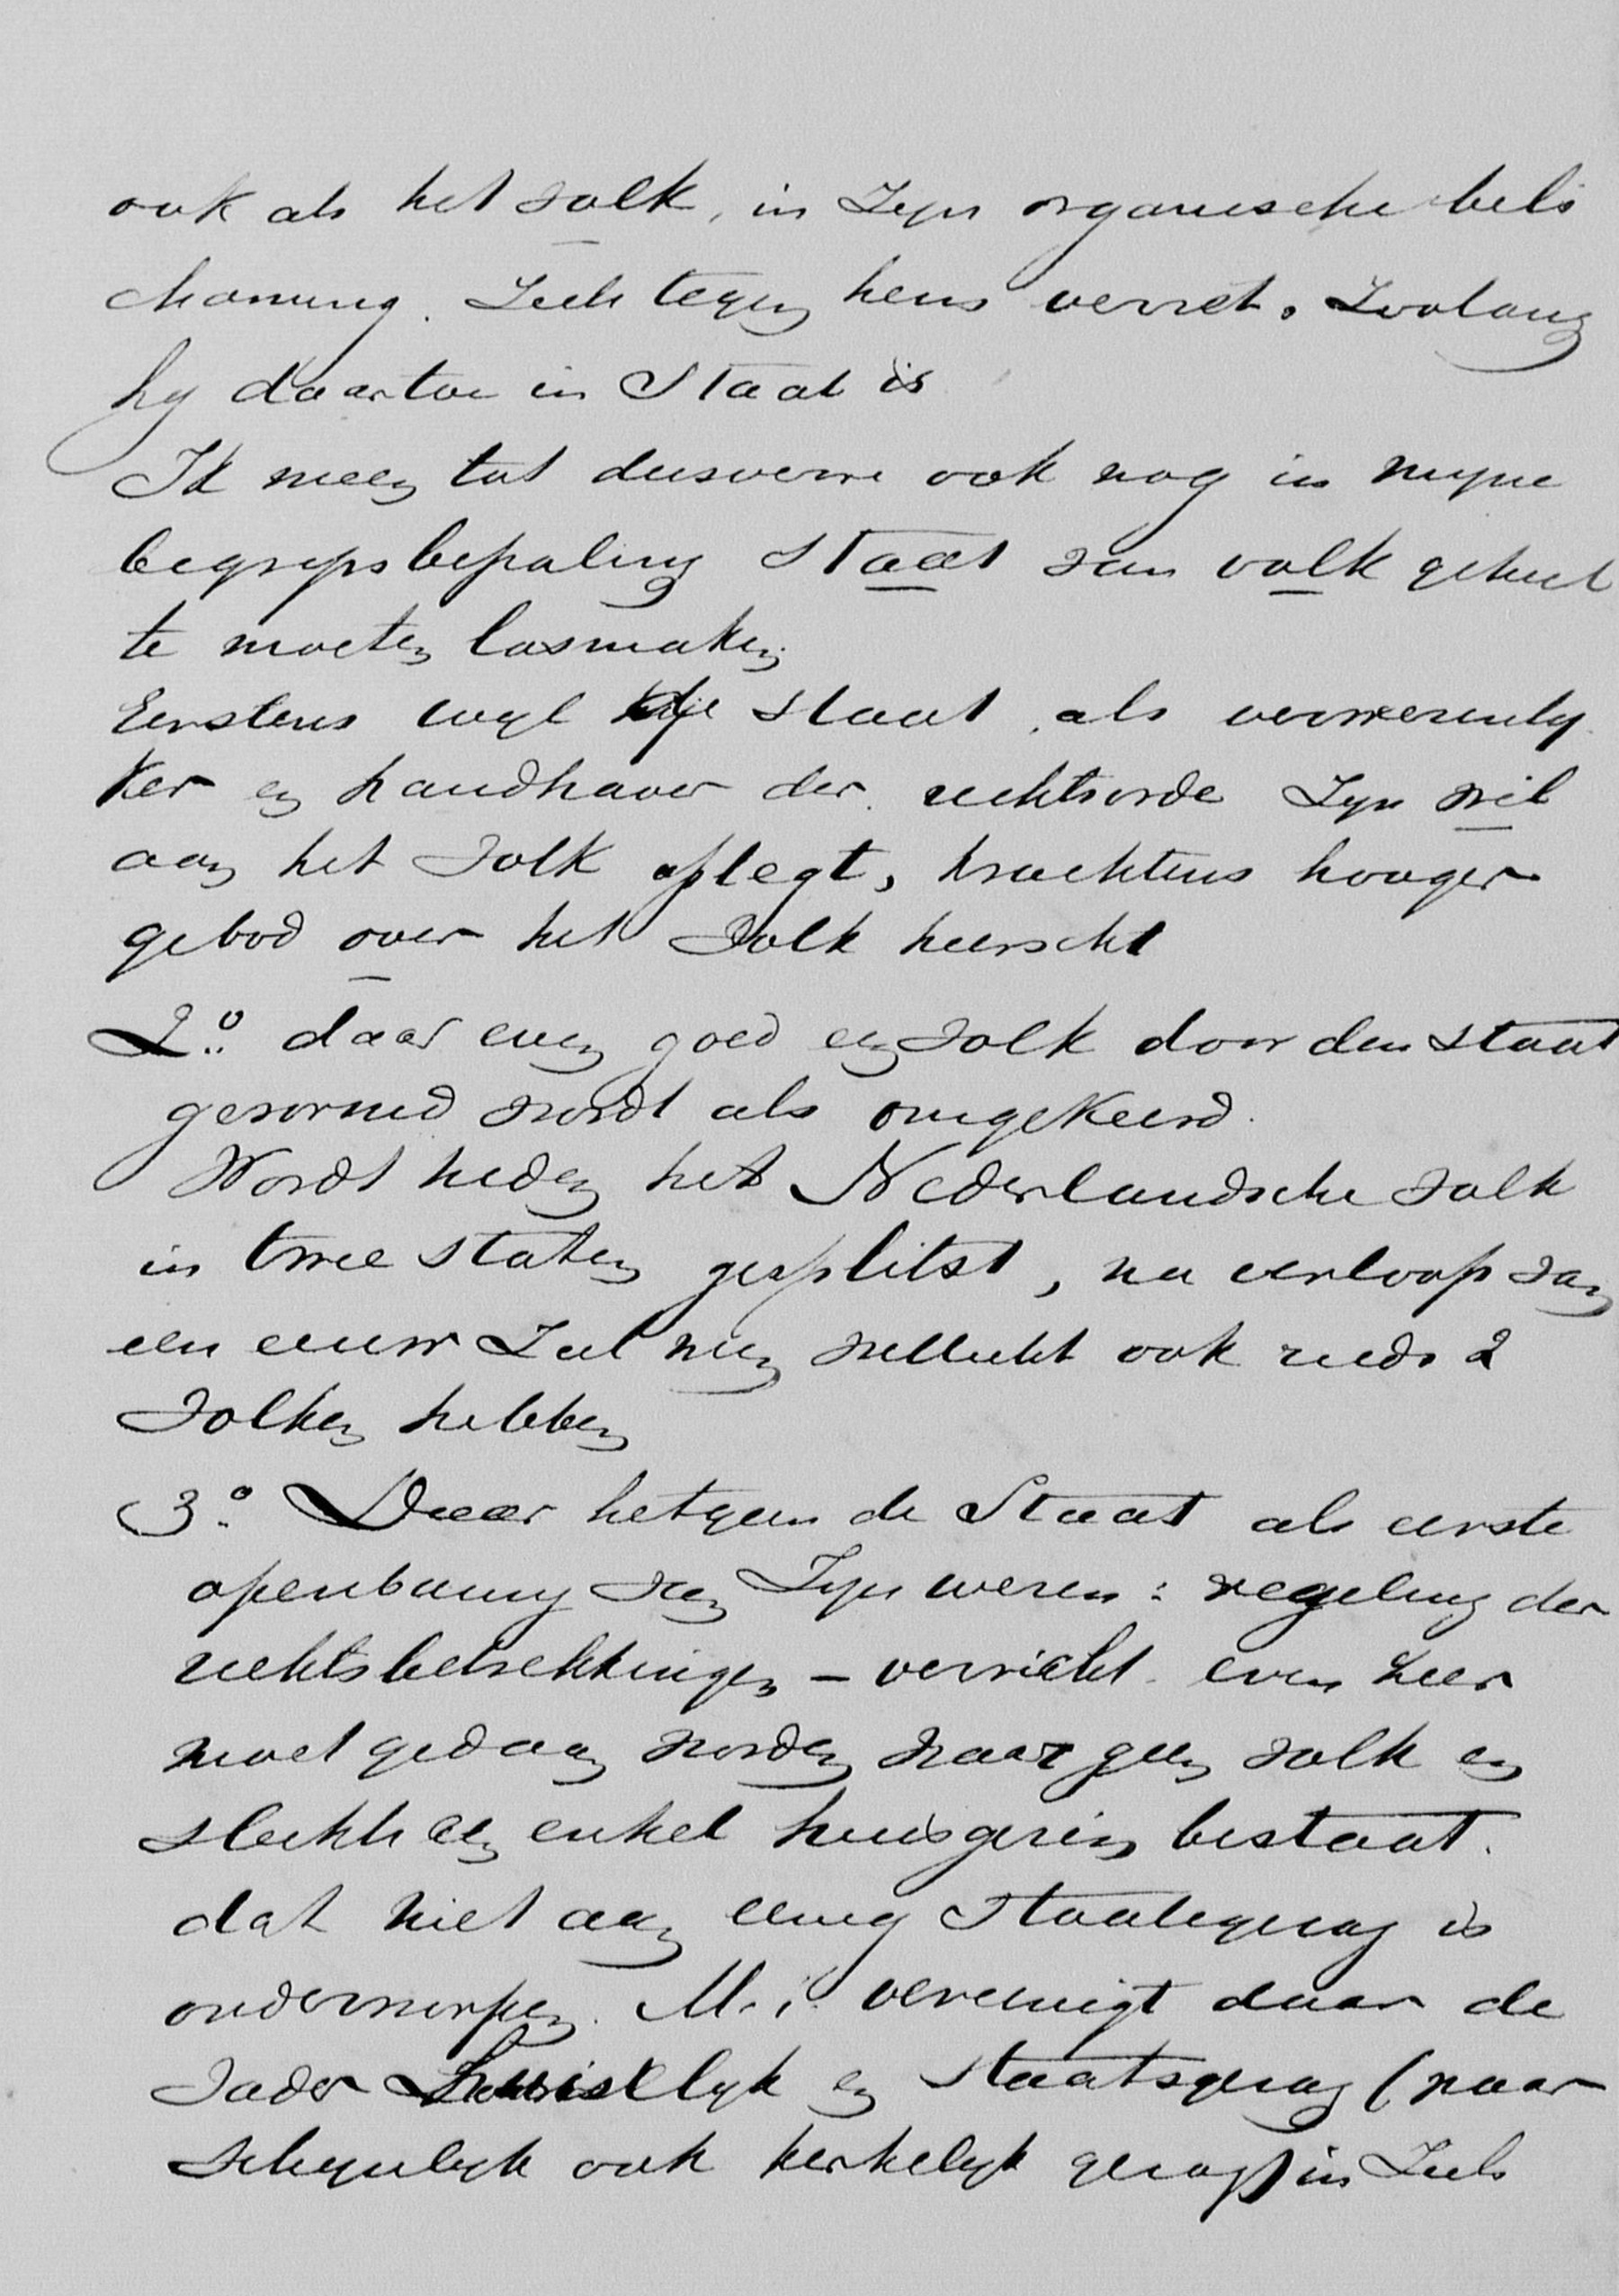 ook als het volk, in zyn organische beli
chaming. Zich tegen hem verzet. Zoolang
hy daartoe in Staat is
Ik meen tot dusverre ook nog in myne
begripsbepaling Staat van volk geheel
te moeten losmaken
Eerstens wyl de staat, als verwezenly
ker en handhaver der rechtsorde Zyn wil
aan het Volk oplegt, krachtens hooger
gebod over het Volk heerscht
2.o daar even goed een volk door den staat
gevormd wordt als omgekeerd.
Wordt heden het Nederlandsche volk
in twee staten gesplitst, na verloop van
een eeuw Zal men wellicht ook reeds 2
Volken hebben
3.o Daar hetgeen de Staat als eerste
openbaring van Zyn wezen: regeling der
rechtsbetrekkingen - verricht even zeer
moet gedaan worden waar geen volk en
slechts een enkel huisgezin bestaat.
dat niet aan eenig Staatsgezag is
onderworpen. M.i. vereenigt daar de
Vader huislyk en Staatsgezag (waar
schynlyk ook kerkelyk gezag) in Zich